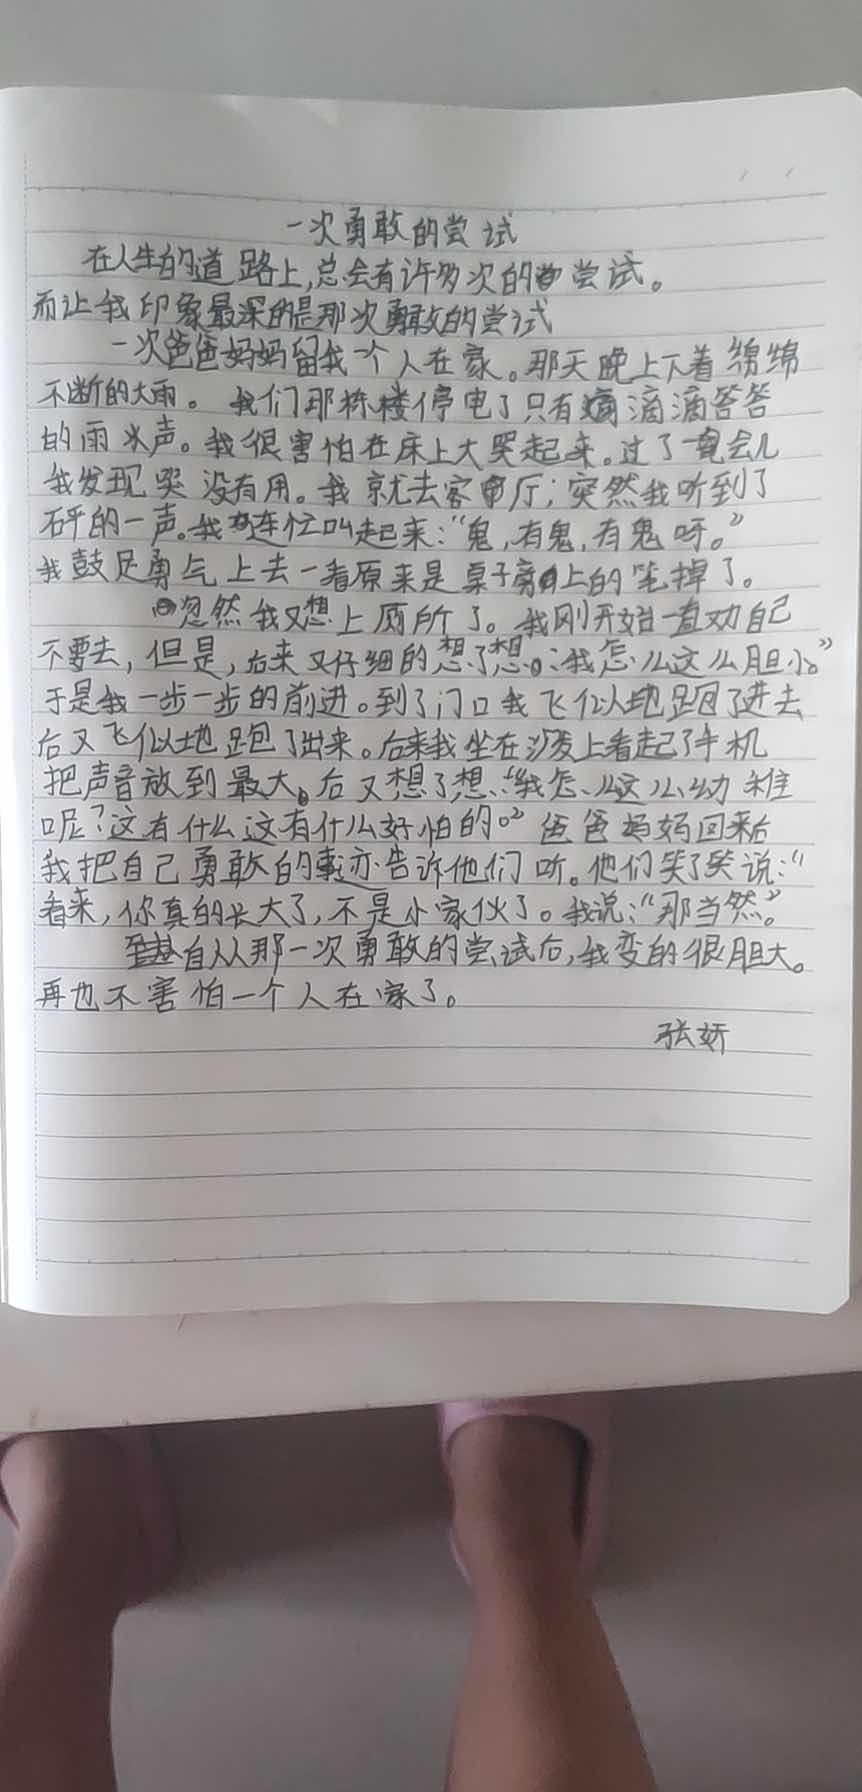 一次勇敢的尝试
在人生的道路上,总会有许多次的尝试。
而让我印象最深的是那次勇敢的尝试
一次爸爸妈妈留我一个人在家。那天晚上下着绵绵
不断的大雨。我们那栋楼停电了只有滴滴答答
的雨水声。我很害怕在床上大哭起来。过了一会儿
我发现哭没有用。我就去客厅;突然我听到了
砰的一声。我连忙叫起来:“鬼,有鬼,有鬼呀。”
我鼓足勇气上去一看原来是桌子上的笔掉了。
忽然我又想上厕所了。我刚开始一直劝自己
不要去,但是,后来又仔细的想了想:我怎么这么胆小。”
于是我一步一步的前进。到了门口我飞似地跑了进去
后又飞似地跑了出来。后来我坐在沙发上看起了手机
把声音放到最大。后又想了想:“我怎么这么幼稚
呢?这有什么这有什么好怕的。” 爸爸妈妈回来后
我把自己勇敢的事迹告诉他们听。他们笑了笑说:“
看来,你真的长大了,不是小家伙了。我说:“那当然。”
自从那一次勇敢的尝试后,我变的很胆大。
再也不害怕一个人在家了。
张妍